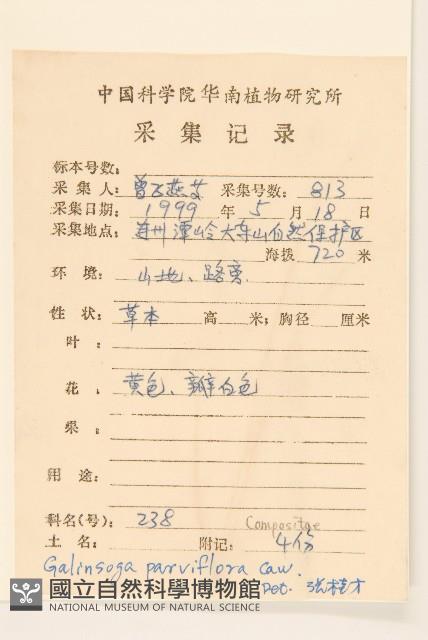 中国科学院华南植物研究所
采集记录
标本号数:
采集人: 曾飞燕 采集号数: 813
采集日期: 1999 年 5 月 18 日
采集地点: 连州潭岭大东山自然保护区
海拨 720 米
环境: 山地、路旁
性状: 草本 高 米; 胸径 厘米
叶:
花: 黄色、瓣白色
果:
用途:
科名(号): 238 Compositae
土名: 附记: 4份
Galinsoga parviflora Cav.
Det. 张桂才
國立自然科學博物館
NATIONAL MUSEUM OF NATURAL SCIENCE